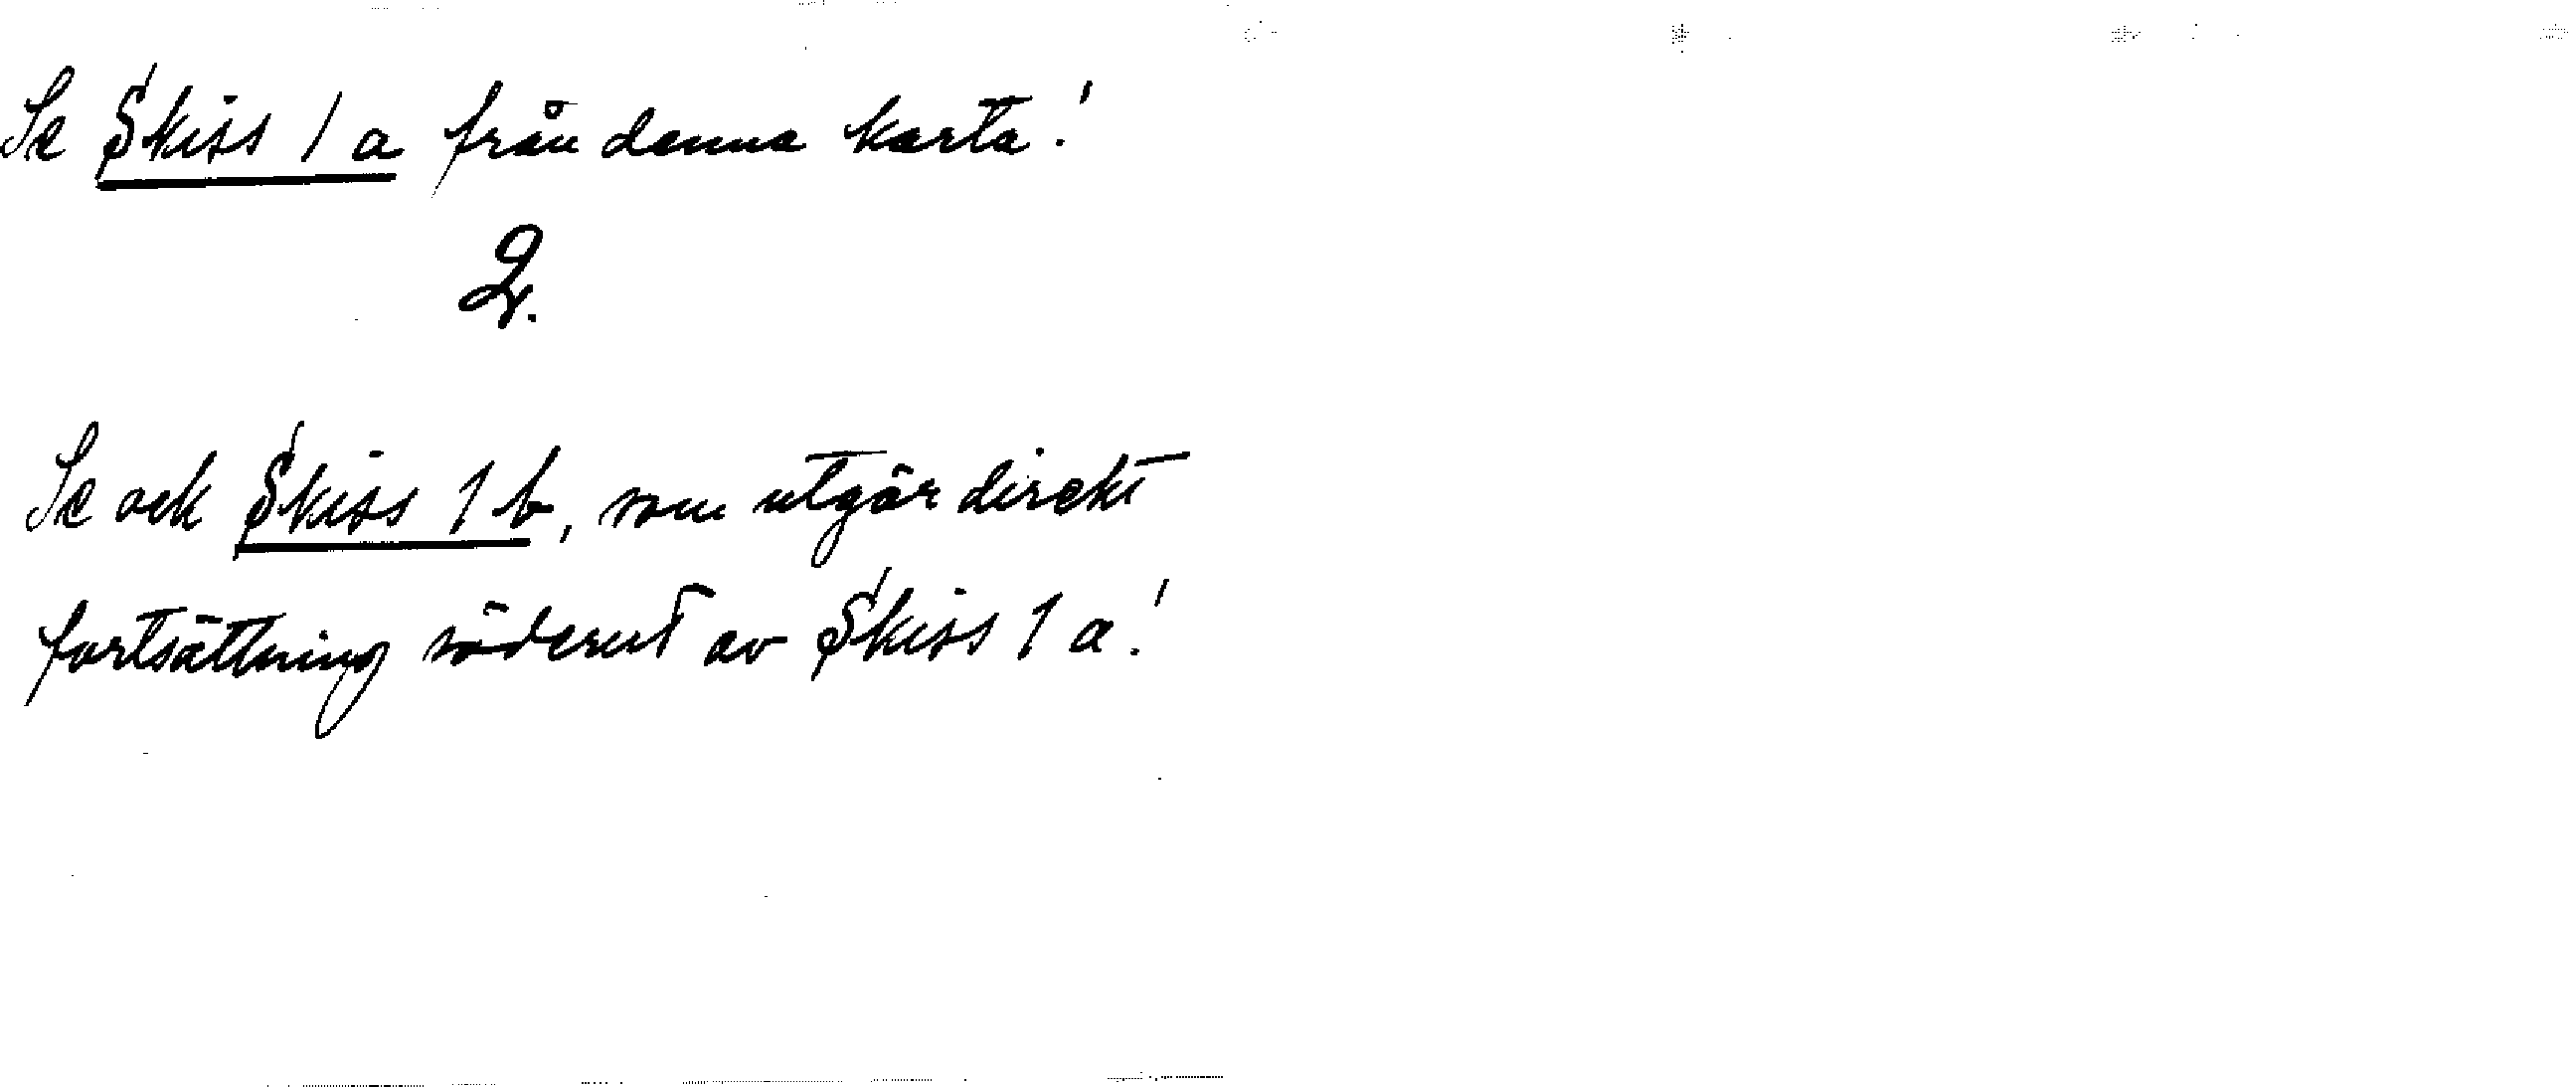 Se Skiss 1 a från denna karta!
2.
Se ock Skiss 1 b, som utgör direkt
fortsättning söderut av Skiss 1 a!